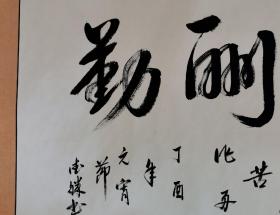 酬勤
苦
丁酉
年
元宵
節
书